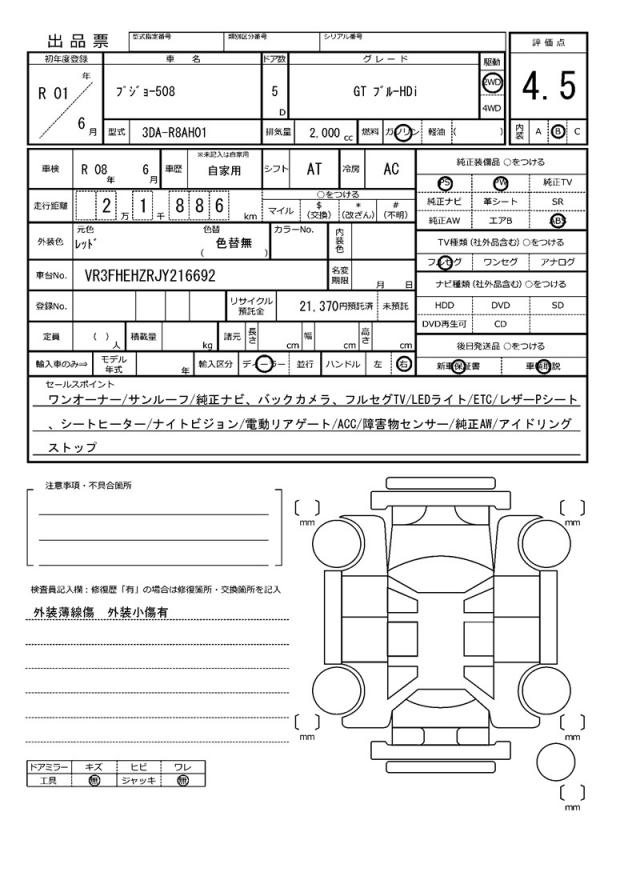 出品票 型式指定番号 類別区分番号 シリアル番号
評価点
4.5
内装 A B C
初年度登録 車名 ドア数 グレード 駆動
R 01 年 6 月 プジョー508 5 D GT ブルーHDi 2WD 4WD
型式 3DA-R8AH01 排気量 2,000 cc 燃料 ガソリン 軽油 ( )
車検 R 08 年 6 月 車歴 ※未記入は自家用 自家用 シフト AT 冷房 AC
走行距離 2 万 1 千 8 8 6 km ○をつける マイル $ (交換) * (改ざん) # (不明)
外装色 元色 レッド 色替 色替無 ( ) カラーNo. 内装色
車台No. VR3FHEHZRJY216692 名変期限 月 日
登録No. リサイクル預託金 21,370円預託済 未預託
定員 ( ) 人 積載量 kg 諸元 長さ cm 幅 cm 高さ cm
輸入車のみ⇒ モデル年式 年 輸入区分 ディーラー 並行 ハンドル 左 右
純正装備品 ○をつける
PS PW 純正TV
純正ナビ 革シート SR
純正AW エアB ABS
TV種類 (社外品含む) ○をつける
フルセグ ワンセグ アナログ
ナビ種類 (社外品含む) ○をつける
HDD DVD SD
DVD再生可 CD
後日発送品 ○をつける
新車保証書 車輌取説
セールスポイント
ワンオーナー/サンルーフ/純正ナビ、バックカメラ、フルセグTV/LEDライト/ETC/レザーPシート
、シートヒーター/ナイトビジョン/電動リアゲート/ACC/障害物センサー/純正AW/アイドリング
ストップ
注意事項・不具合箇所
検査員記入欄:修復歴「有」の場合は修復箇所・交換箇所を記入
外装薄線傷 外装小傷有
ドアミラー キズ ヒビ ワレ
工具 無 ジャッキ 無
mm mm
mm mm
mm